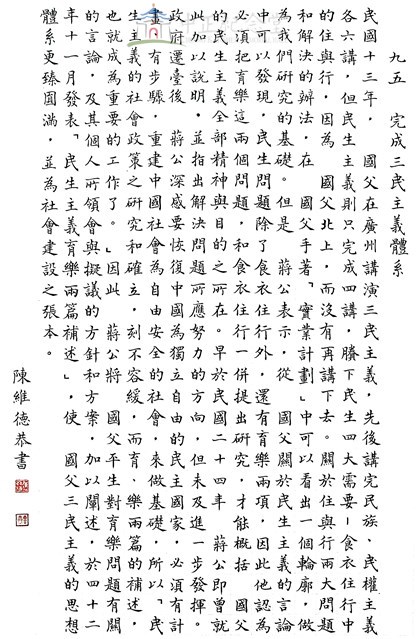 九五　完成三民主義體系
民國十三年，　國父在廣州講演三民主義，先後講完民族、民權主義
各六講，但民生主義則只完成四講，賸下民生四大需要－食衣住行中
的住與行，因為　國父北上，而沒有再講下去。關於住與行兩大問題
和解決的辦法，在　國父手著「實業計劃」中可以看出一個輪廓，做
為我們研究的基礎。但是　蔣公表示，從　國父關於民生主義的言論
中可以發現，民生問題除了食衣住行外，還有育樂兩項，因此他認為
必須把育樂這兩個問題，和食衣住行一併提出研究，才能概括　國父
的民生主義全部精神與目的之所在。早於民國二十四年　蔣公即曾就
此加以說明，並指出解決問題所應努力的方向，但未及進一步發揮。
政府遷臺後　蔣公深感要恢復中國為獨立自由的民主國家，必須有計
畫、有步驟，重建中國社會為自由安全的社會，來做基礎，所以「民
生主義的社會政策之研究和確立，刻不容緩，而育、樂兩篇的補述，
也就成為重要的工作了。」因此　蔣公將　國父平生對育樂問題有關
的言論，及其個人所領會與擬議的方針和方案，加以闡述，於四十二
年十一月發表「民生主義育樂兩篇補述」，使　國父三民主義的思想
體系更臻圓滿，並為社會建設之張本。
陳維德恭書